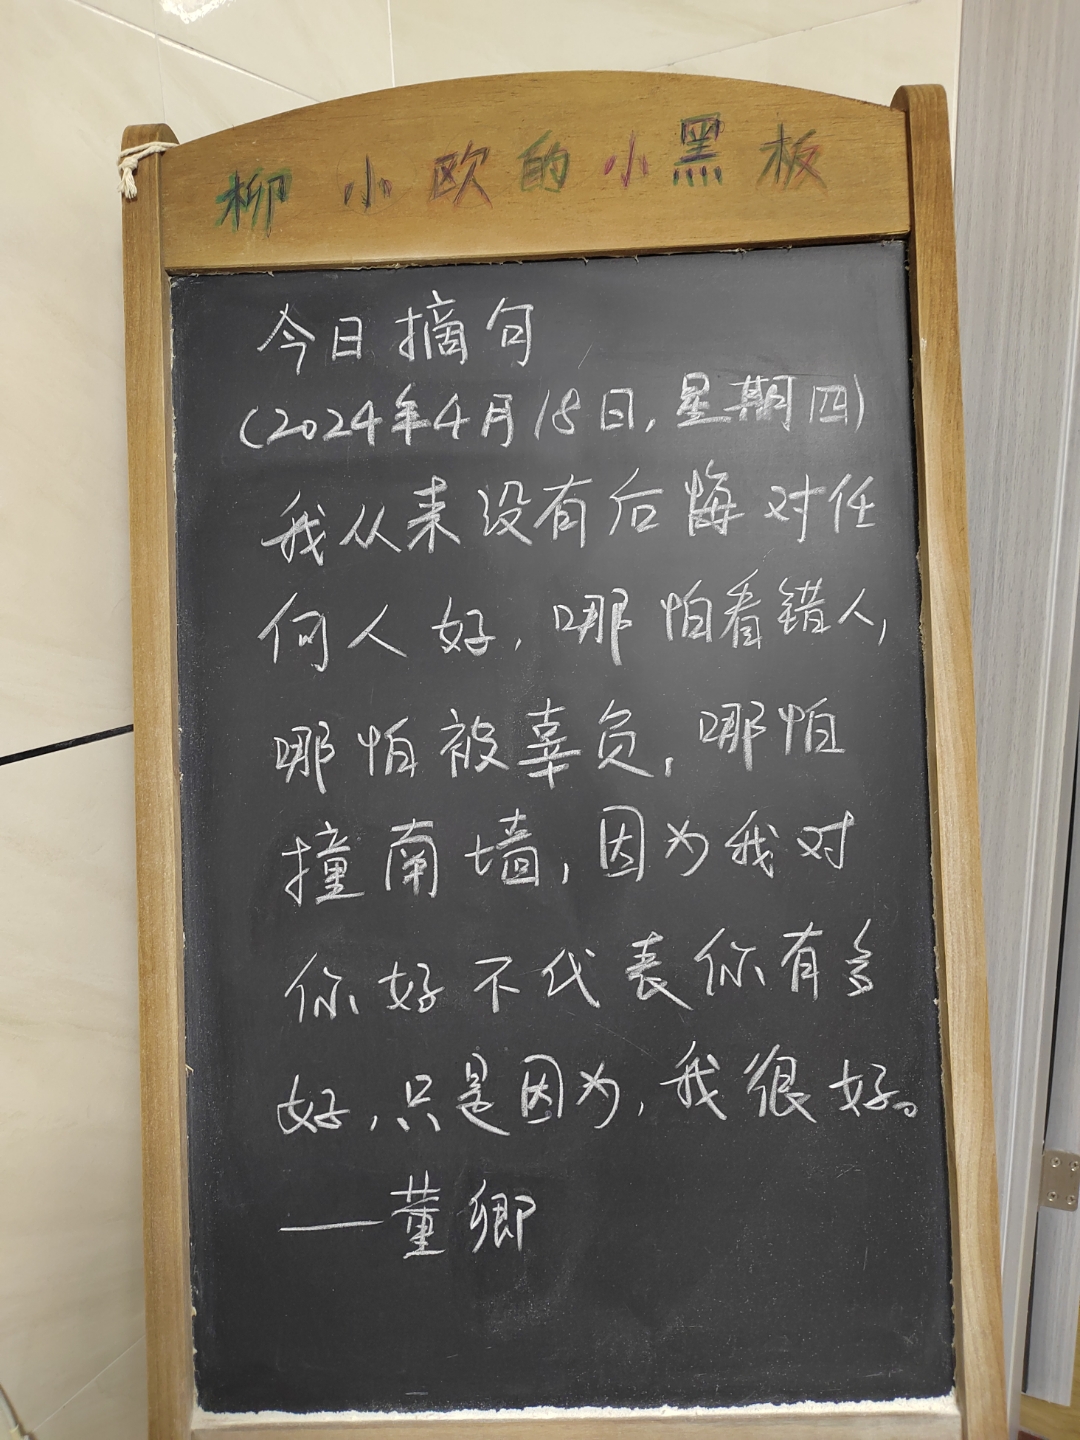 柳小欧的小黑板
今日摘句
(2024年4月18日,星期四)
我从来没有后悔对任
何人好,哪怕看错人,
哪怕被辜负,哪怕
撞南墙,因为我对
你好不代表你有多
好,只是因为,我很好。
——董卿